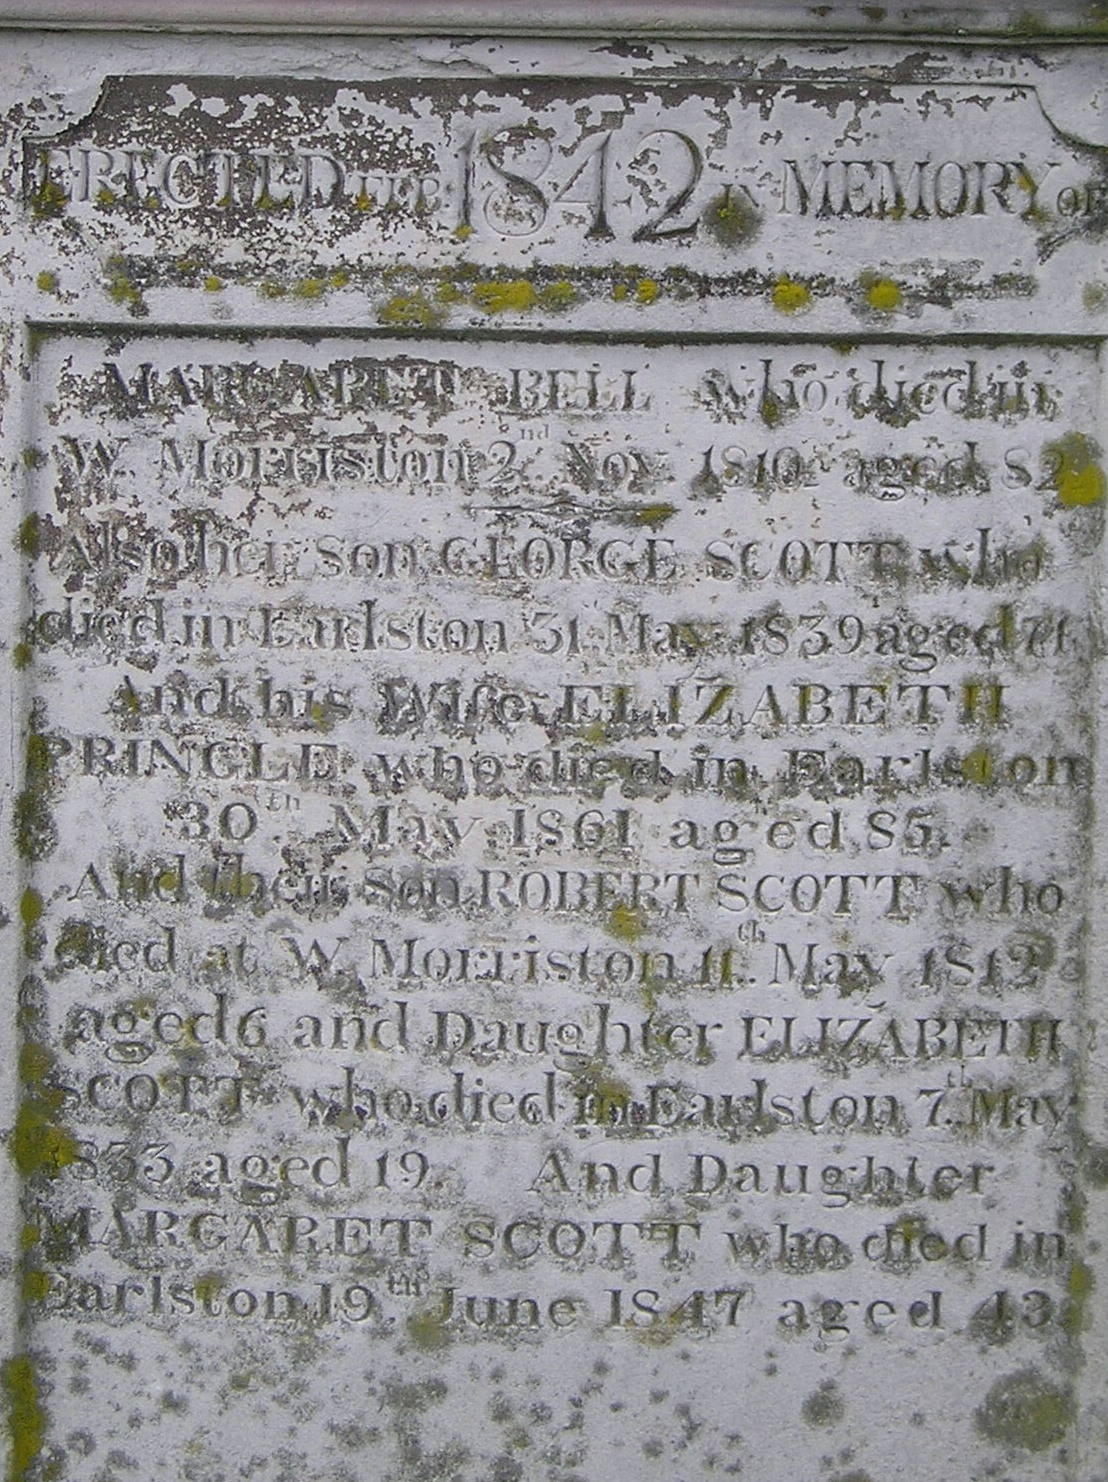 ERECTED FEB. 1842 IN MEMORY OF
MARGARET BELL who died in
W. Morriston 2nd Nov. 1810 aged 82
Also her Son GEORGE SCOTT who
died in Earlston 31 May 1839 aged 71
And his Wife ELIZABETH
PRINGLE who died in Earlston
30th May 1861 aged 85.
And their Son ROBERT SCOTT who
died at W. Morriston 11th May 1812
aged 6 and Daughter ELIZABETH
SCOTT who died in Earlston 7th May
1833 aged 19. And Daughter
MARGARET SCOTT who died in
Earlston 19th June 1847 aged 43.